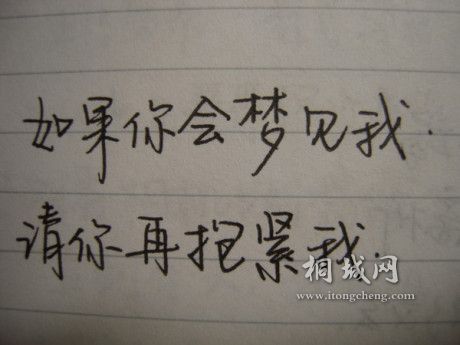 如果你会梦见我.
请你再抱紧我.
桐城网
www.itongcheng.com